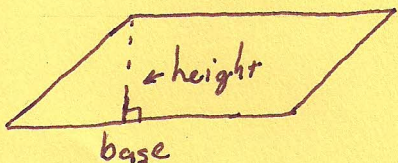 height
base